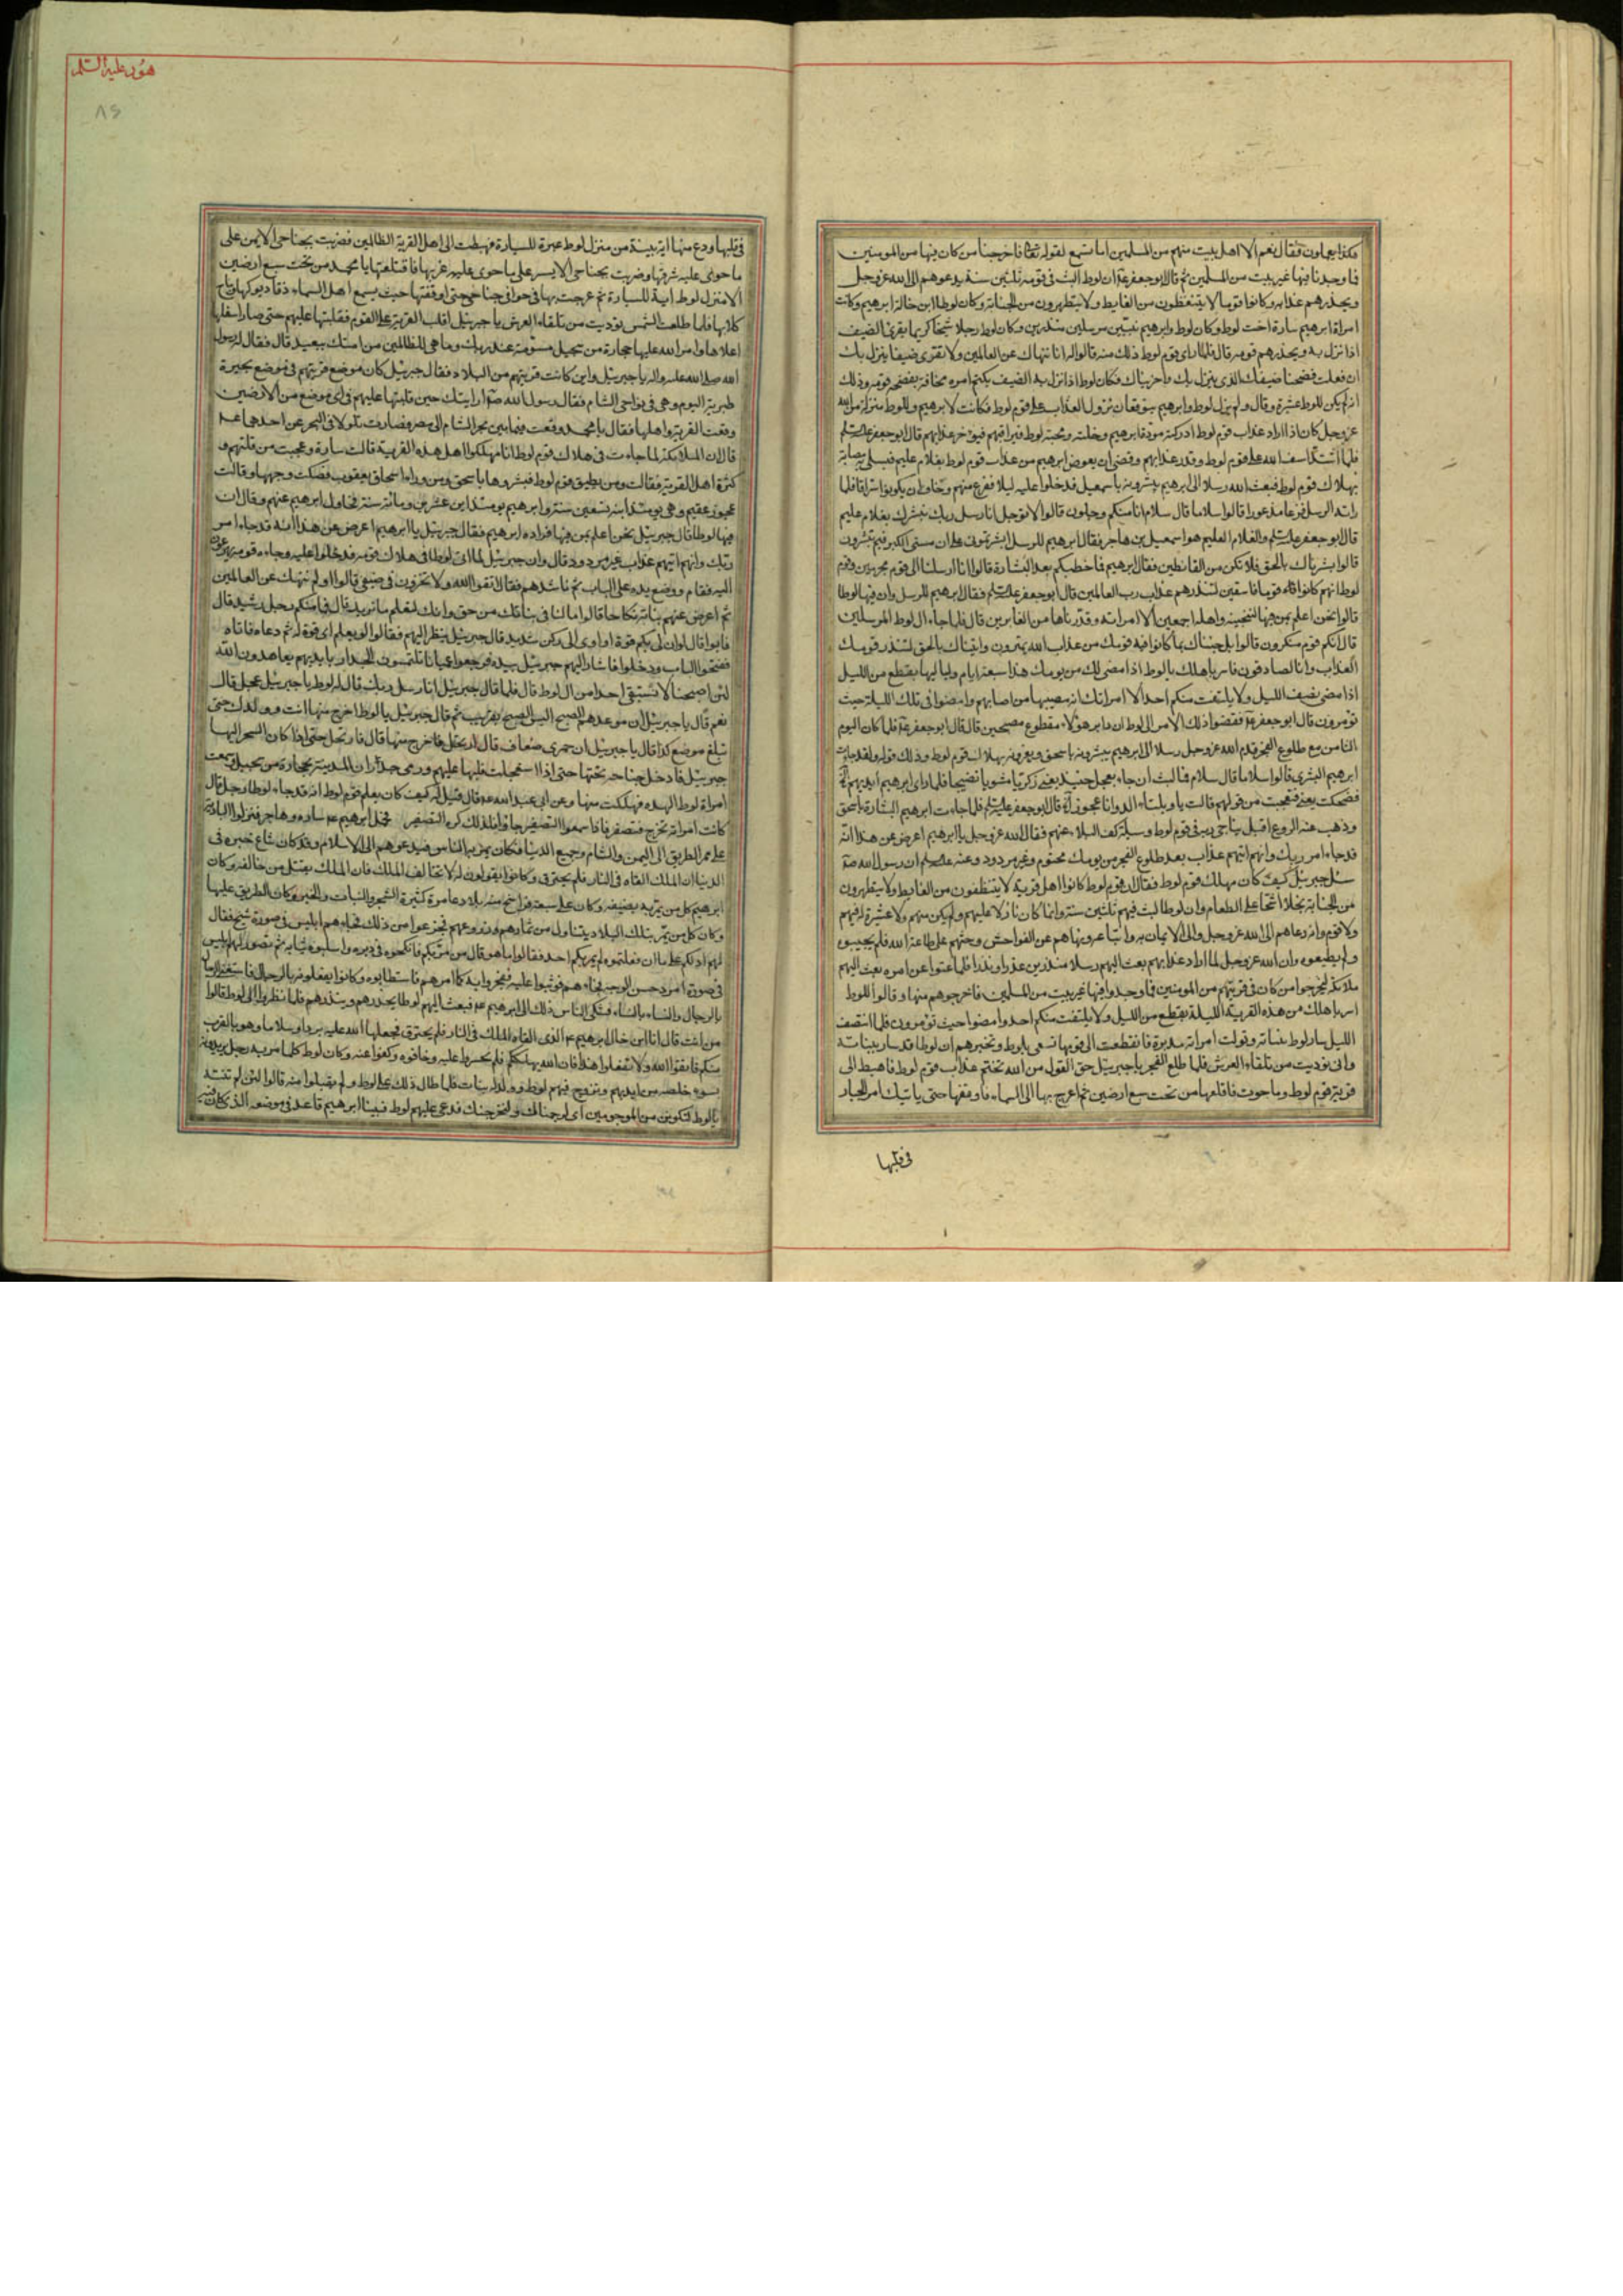 هكذا يعملون فقال نعم الا اهل بيت منهم من المسلمين اما تسمع لقوله تعالى فاخرجنا من كان فيها من المومنين
فما وجدنا فيها غير بيت من المسلمين ثم قال ابو جعفر ان لوطا لبث فى قومه ثلثين سنة يدعوهم الى الله عز وجل
ويحذرهم عذابه وكانوا قوما لا يتنظفون من الغايط ولا يتطهرون من الجنابة وكان لوط ابن خالة ابرهيم وكانت
امراة ابرهيم سارة اخت لوط وكان لوط وابرهيم نبيين مرسلين منذرين وكان لوط رجلا سخيا كريما يقرى الضيف
اذا نزل به ويحذرهم قومه قال فلما راى قوم لوط ذلك منه قالوا له انا ننهاك عن العالمين ولا تقرى ضيفا ينزل بك
ان فعلت فضحنا ضيفك الذى ينزل بك واخزيناك فكان لوط اذا نزل به الضيف يكتم امره مخافة ان يفضحه قومه وذلك
انه لم يكن للوط عشيرة وقال ولم يزل لوط وابرهيم يتوقعان نزول العذاب على قوم لوط فكانت لابرهيم وللوط منزلة من الله
عز وجل كان اذا اراد عذاب قوم لوط ادركته مودة ابرهيم وخلته ومحبة لوط فيراقبهم فيؤخر عذابهم قال ابو جعفر
فلما اشتد اسف الله على قوم لوط وقدر عذابهم وقضى ان يعوض ابرهيم من عذاب قوم لوط بغلام عليم فيسلى به مصابه
بهلاك قوم لوط فبعث الله رسلا الى ابرهيم يبشرونه باسمعيل فدخلوا عليه ليلا ففزع منهم وخاف ان يكونوا سراقا فلما
راته الرسل فزعا مذعورا قالوا سلاما قال سلام انا منكم وجلون قالوا لا توجل انا رسل ربك نبشرك بغلام عليم
قال ابو جعفر والغلام العليم هو اسمعيل بن هاجر فقال ابرهيم للرسل ابشرتمونى على ان مسنى الكبر فبم تبشرون
قالوا بشرناك بالحق فلا تكن من القانطين فقال ابرهيم فما خطبكم بعد البشارة قالوا انا ارسلنا الى قوم مجرمين وقوم
لوط انهم كانوا قوما فاسقين لننذرهم عذاب رب العالمين قال ابو جعفر فقال ابرهيم للرسل وان فيها لوطا
قالوا نحن اعلم بمن فيها لننجينه واهله اجمعين الا امراته وقدرناها من الغابرين قال فلما جاء ال لوط المرسلين
قال انكم قوم منكرون قالوا بل جئناك بما كانوا فيه قومك من عذاب الله يمترون واتيناك بالحق لننذر قومك
العذاب وانا لصادقون فاسر باهلك يا لوط اذا مضى لك من يومك هذا سبعة ايام ولياليها بقطع من الليل
اذا مضى نصف الليل ولا يلتفت منكم احد الا امراتك انه مصيبها ما اصابهم وامضوا فى تلك الليلة حيث
تومرون قال ابو جعفر فقضوا ذلك الامر الى لوط ان دابر هولاء مقطوع مصبحين قال قال ابو جعفر فلما كان اليوم
الثامن مع طلوع الفجر قدم الله عز وجل رسلا الى ابرهيم يبشرونه باسحق ويعزونه بهلاك قوم لوط وذلك قوله ولقد جاءت
ابرهيم البشرى قالوا سلاما قال سلام فما لبث ان جاء بعجل حنيذ يعنى زكيا مشويا نضيجا فلما راى ابرهيم ايديهم
فضحكت يعنى فتعجبت من قولهم قالت يا ويلتاء الد وانا عجوز قال ابو جعفر فلما جاءت ابرهيم البشارة باسحق
وذهب عنه الروع اقبل يناجى ربه فى قوم لوط وسيلة كف البلاء عنهم فقال الله عز وجل يا ابرهيم اعرض عن هذا انه
قد جاء امر ربك وانهم اتيهم عذاب بعد طلوع الفجر من يومك محتوم وغير مردود وعنه ان رسول الله
سئل جبرئيل كيف كان مهلك قوم لوط فقال ان قوم لوط كانوا اهل قرية لا يتنظفون من الغايط ولا يتطهرون
من الجنابة بخلا اشحا على الطعام وان لوطا لبث فيهم ثلثين سنة وانما كان نازلا عليهم ولم يكن منهم ولا عشيرة له فيهم
ولا قوم وانه دعاهم الى الله عز وجل والى الايمان به واتباعه ونهاهم عن الفواحش وحثهم على طاعة الله فلم يجيبوه
ولم يطيعوه وان الله عز وجل لما اراد عذابهم بعث اليهم رسلا منذرين عذرا ونذرا فلما عتوا عن امره بعث اليهم
ملائكة ليخرجوا من كان فى قريتهم من المومنين فما وجدوا فيها غير بيت من المسلمين فاخرجوهم منها وقالوا للوط
اسر باهلك من هذه القرية الليلة بقطع من الليل ولا يلتفت منكم احد وامضوا حيث تومرون فلما انتصف
الليل سار لوط ببناته وتولت امراته مدبرة فانقطعت الى قومها تسعى بلوط وتخبرهم ان لوطا قد سار ببناته
وانى نوديت من تلقاء العرش فلما طلع الفجر يا جبرئيل حق القول من الله تحتم عذاب قوم لوط فاهبط الى
قرية قوم لوط وما حوت فاقلعها من تحت سبع ارضين ثم اعرج بها الى السماء فاوقفها حتى ياتيك امر الجبار
فى قلبها
هود عليه السلم
٨٢
فى قلبها ودع منها اية بينة من منزل لوط عبرة للسيارة فهبطت الى اهل القرية الظالمين فضربت بجناحى الايمن على
ما حوى عليه شرقها وضربت بجناحى الايسر على ما حوى عليه غربها فاقتلعتها يا محمد من تحت سبع ارضين
الا منزل لوط اية للسيارة ثم عرجت بها فى خوافى جناحى حتى اوقفتها حيث يسمع اهل السماء زقا ديوكها ونباح
كلابها فلما طلعت الشمس نوديت من تلقاء العرش يا جبرئيل اقلب القرية على القوم فقلبتها عليهم حتى صار اسفلها
اعلاها وامطر الله عليها حجارة من سجيل مسومة عند ربك وما هى من الظالمين من امتك ببعيد قال فقال له رسول
الله صلى الله عليه واله يا جبرئيل واين كانت قريتهم من البلاد فقال جبرئيل كان موضع قريتهم فى موضع بحيرة
طبرية اليوم وهى فى نواحى الشام فقال رسول الله ارايتك حين قلبتها عليهم فى اى موضع من الارضين
وقعت القرية واهلها فقال يا محمد وقعت فيما بين بحر الشام الى مصر فصارت تلولا فى البحر عن احدهما ع
قال ان الملائكة لما جاءت فى هلاك قوم لوط انا مهلكوا اهل هذه القرية قالت سارة وعجبت من قلتهم و
كثرة اهل القرية فقالت ومن يطيق قوم لوط فبشروها باسحق ومن وراء اسحاق يعقوب فصكت وجهها وقالت
عجوز عقيم وهى يومئذ ابنة تسعين سنة وابرهيم يومئذ ابن عشرين ومائة سنة فجادل ابرهيم عنهم وقال ان
فيها لوطا قال جبرئيل نحن اعلم بمن فيها فزاده ابرهيم فقال جبرئيل يا ابرهيم اعرض عن هذا انه قد جاء امر
ربك وانهم اتيهم عذاب غير مردود قال وان جبرئيل لما اتى لوطا فى هلاك قومه فدخلوا عليه وجاءه قومه يهرعون
اليه فقام ووضع يده على الباب ثم ناشدهم فقال اتقوا الله ولا تخزون فى ضيفى قالوا اولم ننهك عن العالمين
ثم اعرض عنهم بناته نكاحا قالوا ما لنا فى بناتك من حق وانك لتعلم ما نريد قال فما منكم رجل رشيد قال
فابوا قال لو ان لى بكم قوة او اوى الى ركن شديد قال جبرئيل ينظر اليهم فقال لو يعلم اى قوة له ثم دعاه فاتاه
ففتحوا الباب ودخلوا فاشار اليهم جبرئيل بيده فرجعوا عميانا يلتمسون الجدار بايديهم يعاهدون الله
لئن اصبحنا لا نستبقى احدا من ال لوط قال فلما قال جبرئيل انا رسل ربك قال له لوط يا جبرئيل عجل قال
نعم قال يا جبرئيل ان موعدهم الصبح اليس الصبح بقريب ثم قال جبرئيل يا لوط اخرج منها انت وولدك حتى
تبلغ موضع كذا قال يا جبرئيل ان حمرى ضعاف قال ارتحل فاخرج منها قال فارتحل حتى اذا كان السحر اليها
جبرئيل فادخل جناحه تحتها حتى اذا استعلت قلبها عليهم ورمى جدران المدينة بحجارة من سجيل وسمعت
امراة لوط الهدة فهلكت منها وعن ابى عبد الله قال قيل له كيف كان يعلم قوم لوط انه قد جاء لوطا رجل قال
كانت امراته تخرج فتصفر فاذا سمعوا التصفير جاؤا فلذلك كره التصفير ابرهيم سارة وهاجر فنزلوا البادية
على ممر الطريق الى اليمن والشام وجميع الدنيا فكان يمر به الناس فيدعوهم الى الاسلام وقد كان شاع خبره فى
الدنيا ان الملك القاه فى النار فلم يحترق وكانوا يقولون له لا تخالف الملك فان الملك يقتل من خالفه وكان
ابرهيم كل من يمر به يضيفه وكان على سبعة فراسخ منه بلاد عامرة كثيرة الشجر والنبات والخير وكان الطريق عليها
وكان كل من يمر بتلك البلاد يتناول من ثمارهم وزروعهم فجزعوا من ذلك فجاءهم ابليس فى صورة شيخ فقال
لهم ادلكم على ما ان فعلتموه لم يمر بكم احد فقالوا ما هو قال من مر بكم فانكحوه فى دبره واسلبوه ثيابه ثم تصور لهم ابليس
فى صورة امرد حسن الوجه فجاءهم فوثبوا عليه ففجروا به كما امرهم فاستطابوه وكانوا يفعلونه بالرجال فاستغنى الرجال
بالرجال والنساء بالنساء فشكى الناس ذلك الى ابرهيم فبعث اليهم لوطا يحذرهم وينذرهم فلما نظروا الى لوط قالوا
من انت قال انا ابن خال ابرهيم الذى القاه الملك فى النار فلم يحترق فجعلها الله عليه بردا وسلاما وهو بالقرب
منكم فاتقوا الله ولا تفعلوا هذا فان الله يهلككم فلم يجسروا عليه وخافوه وكفوا عنه وكان لوط كلما مر به رجل يريدونه
بسوء خلصه من ايديهم وتزوج فيهم لوط وولد له بنات فلما طال ذلك على لوط ولم يقبلوا منه قالوا لئن لم تنته
يا لوط لتكونن من المرجومين اى لنرجمنك ولنخرجنك فدعى عليهم لوط فبينا ابرهيم قاعد فى موضعه الذى كان فيه